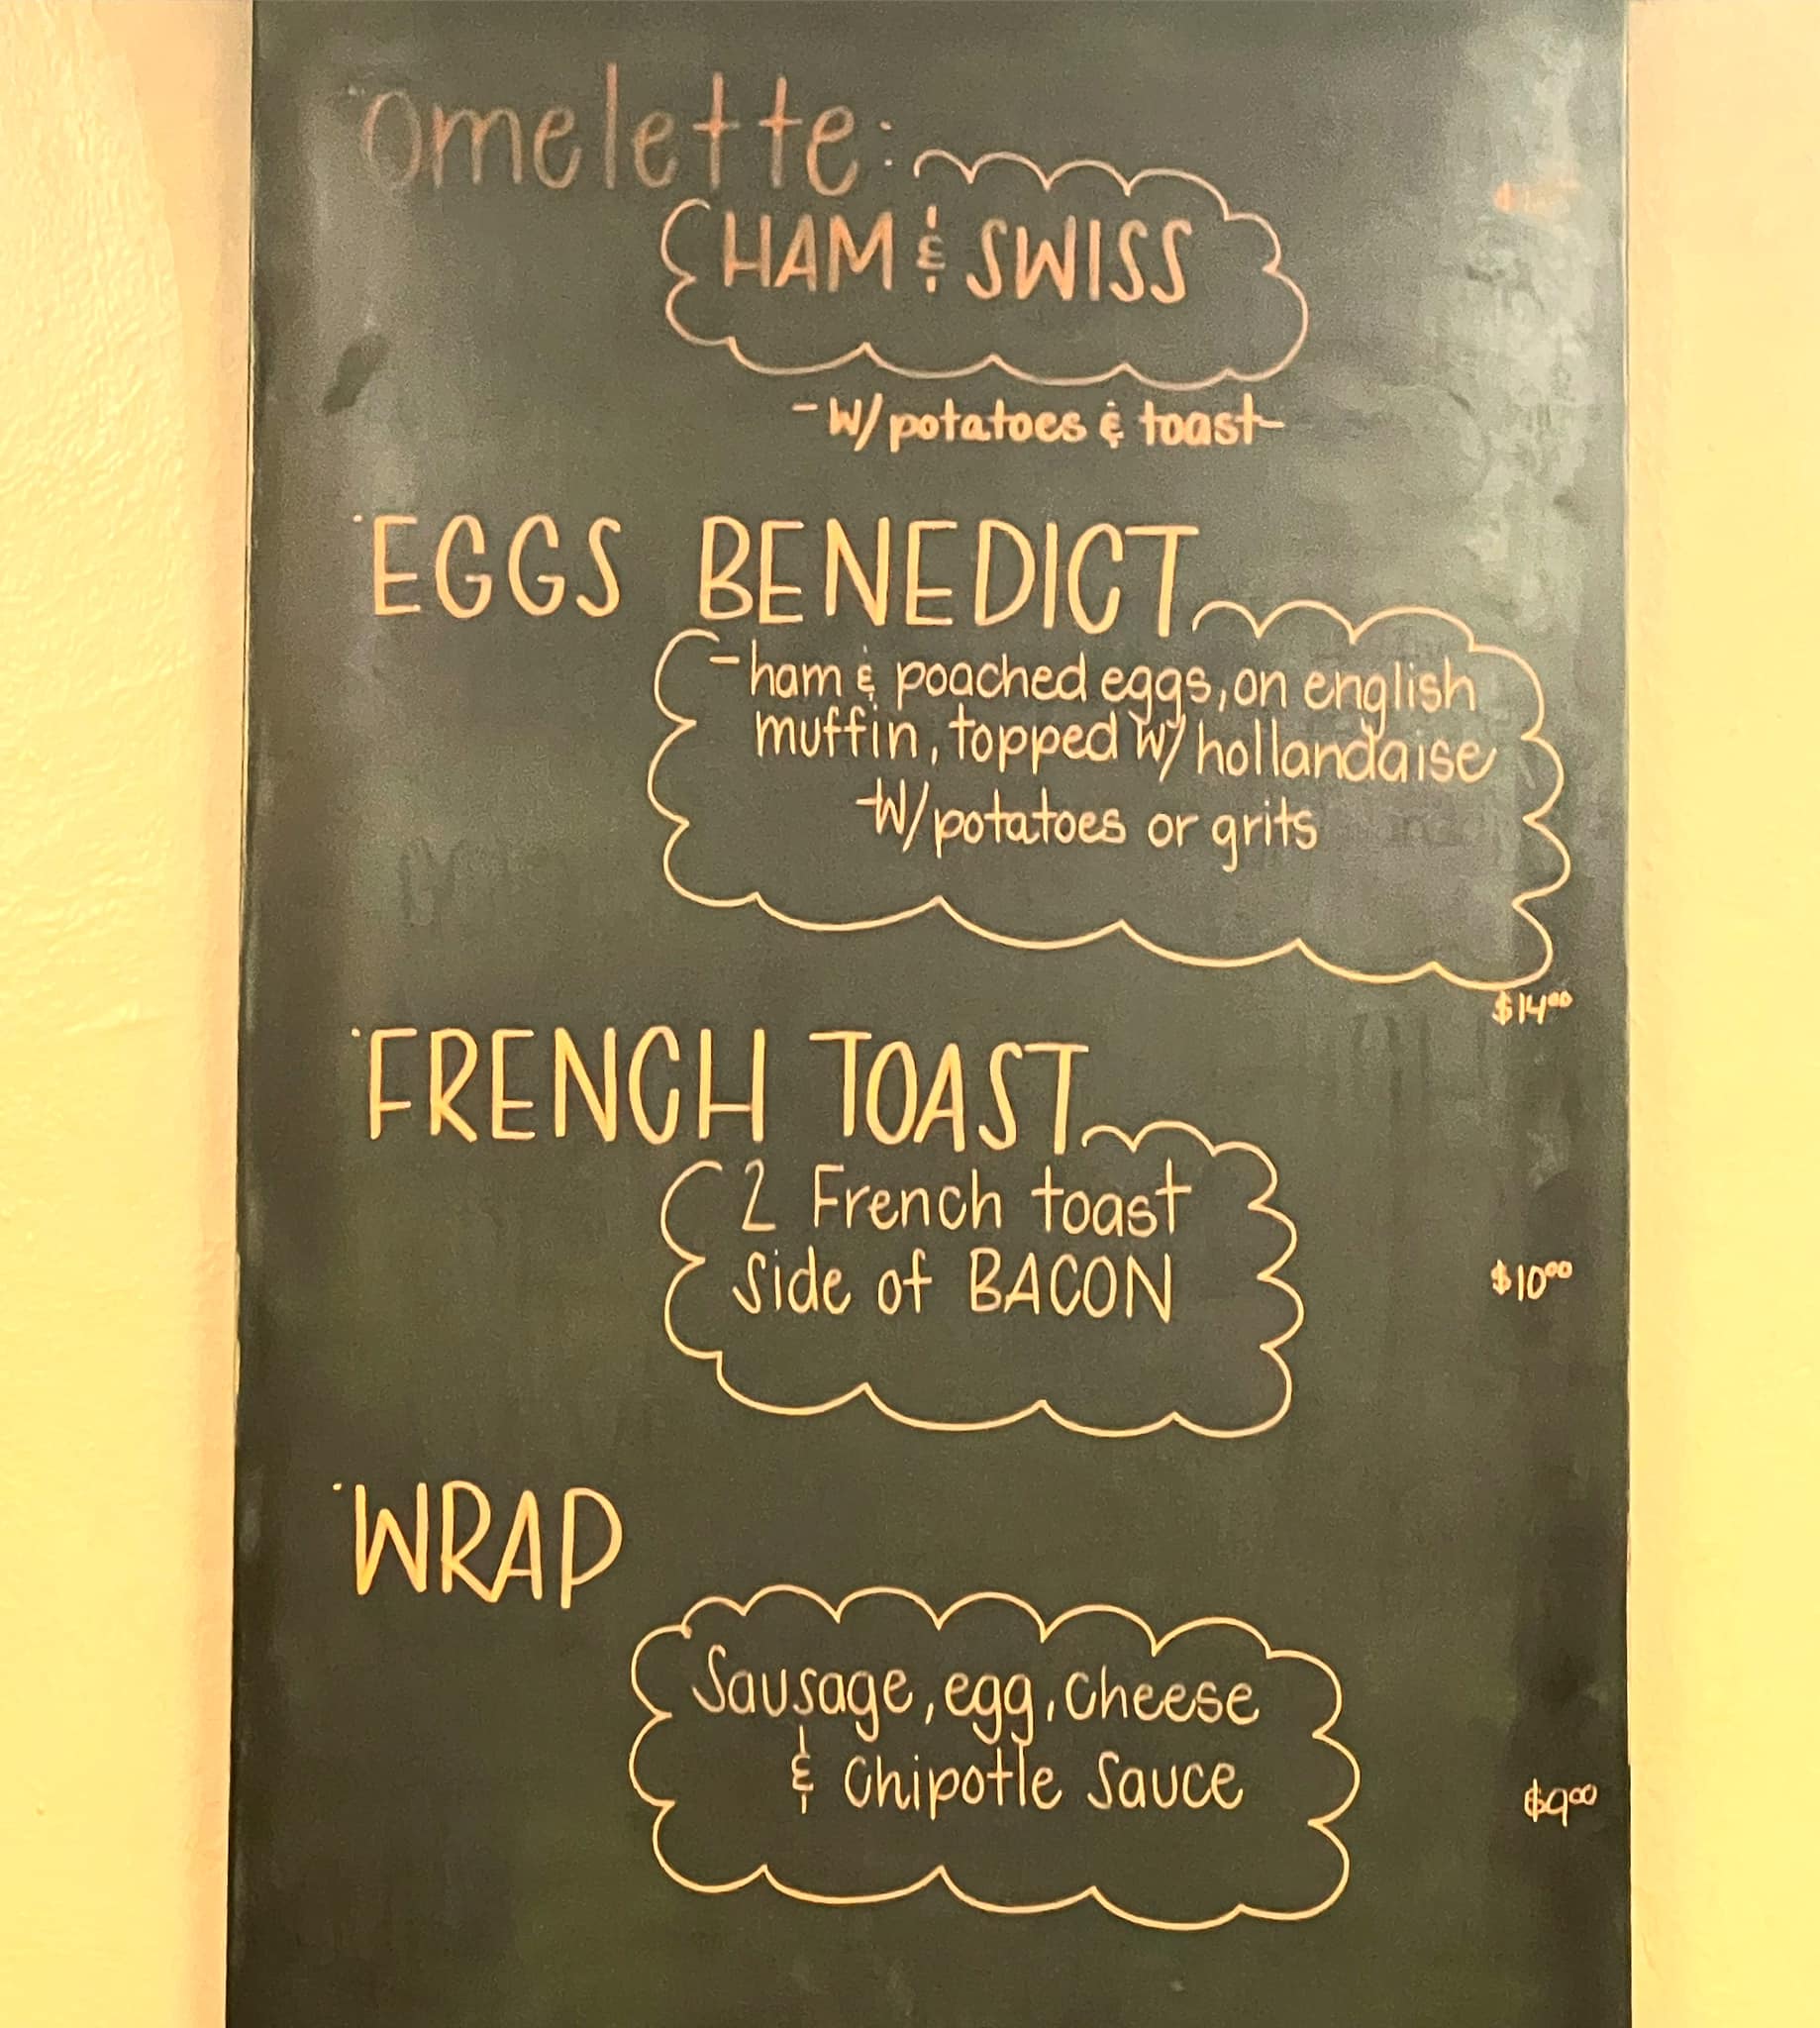 omelette:
HAM & SWISS
-W/potatoes & toast-
EGGS BENEDICT
-ham & poached eggs, on english
muffin, topped w/ hollandaise
-W/potatoes or grits
$14⁰⁰
FRENCH TOAST
2 French toast
Side of BACON
$10⁰⁰
WRAP
Sausage, egg, cheese
& Chipotle Sauce
$9⁰⁰